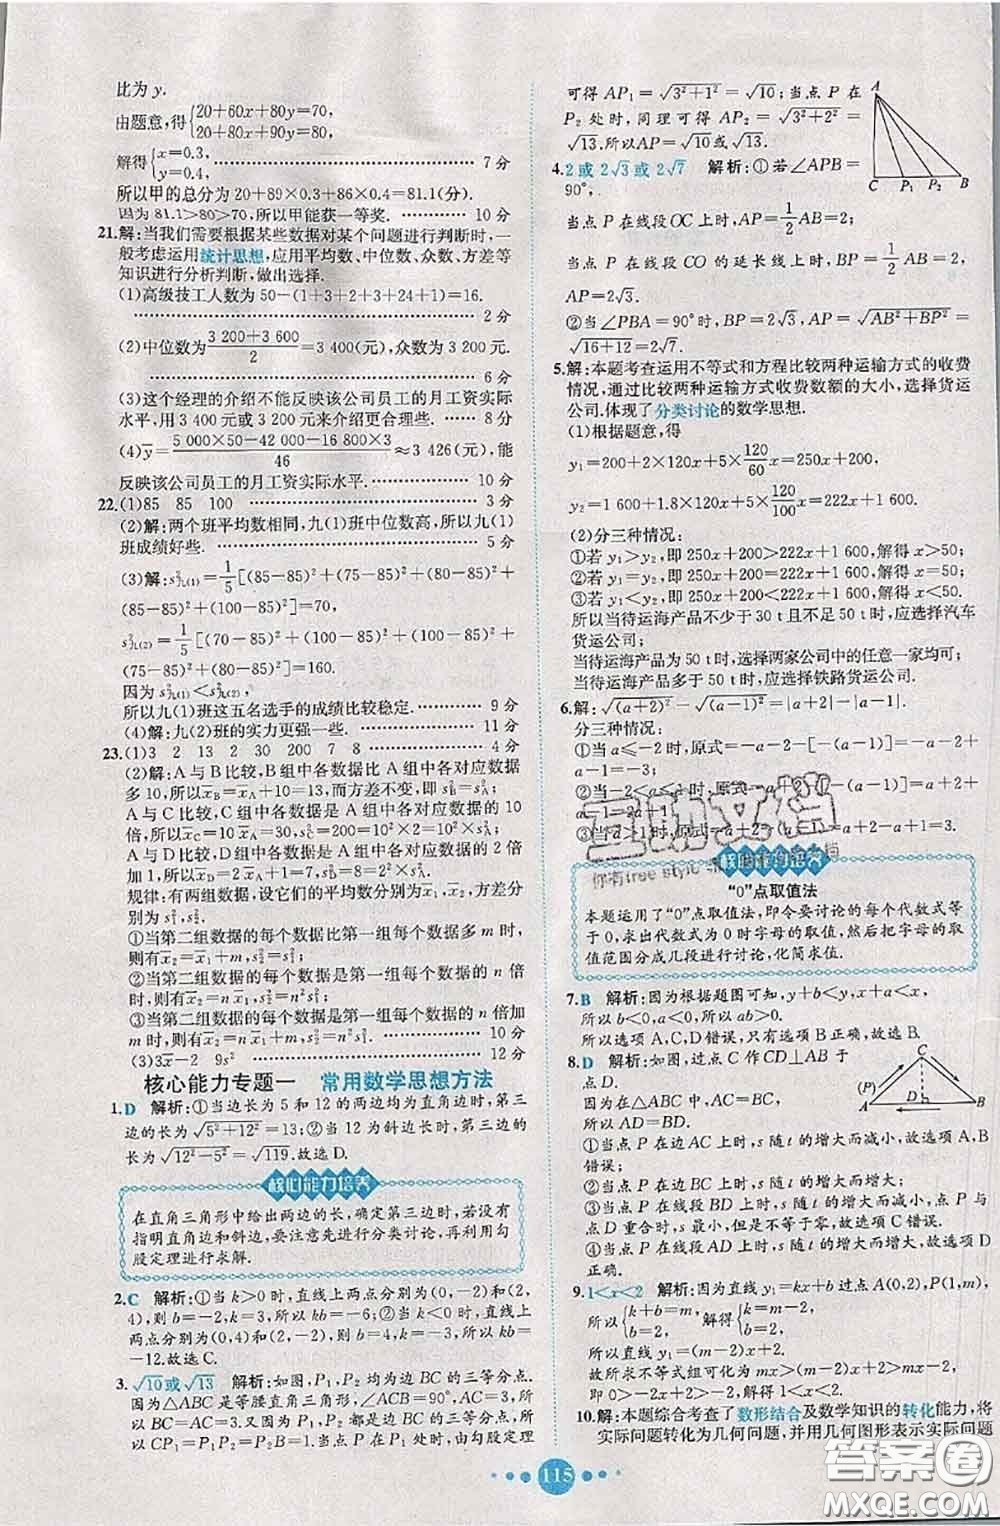 比为 y.
由题意,得{20+60x+80y=70,
20+80x+90y=80,
解得{x=0.3,
y=0.4, 7分
所以甲的总分为20+89×0.3+86×0.4=81.1(分).
因为81.1>80>70,所以甲能获一等奖. 10分
21.解:当我们需要根据某些数据对某个问题进行判断时,一
般考虑运用统计思想,应用平均数、中位数、众数、方差等
知识进行分析判断,做出选择.
(1)高级技工人数为50-(1+3+2+3+24+1)=16.
2分
(2)中位数为(3 200+3 600)/2=3 400(元),众数为 3 200元.
6分
(3)这个经理的介绍不能反映该公司员工的月工资实际
水平,用 3 400元或3 200元更合理些. 8分
(4)y̅=(5 000×50-42 000-16 800×3)/46≈3 426(元),能
反映该公司员工的月工资实际水平. 10分
22.(1)85 85 100 3分
(2)解:两个班平均数相同,九(1)班中位数高,所以九(1)
班成绩好些. 5分
(3)解:s²九(1)=1/5[(80-85)²+(75-85)²+(80-85)²+
(85-85)²+(100-85)²]=70,
s²九(2)=1/5[(70-85)²+(100-85)²+(100-85)²+
(75-85)²+(80-85)²]=160.
因为 s²九(1)<s²九(2),
所以九(1)班这五名选手的成绩比较稳定. 9分
(4)解:九(2)班的实力更强一些. 11分
23.(1)3 2 13 2 30 200 7 8 4分
(2)解:A与B比较,B组中各数据比A组中各对应数据
多10,所以x̅B=x̅A+10=13,而方差不变,即s²B=s²A.
A与C比较,C组中各数据是A组中各对应数据的10
倍,所以x̅C=10x̅A=30,s²C=10²×s²A.
A与D比较,D组中各数据是A组中各对应数据的2倍
加1,所以x̅D=2x̅A+1=7,s²D=2²×s²A=8.
规律:有两组数据,设它们的平均数分别为x̅1,x̅2,方差
分别为s²1,s²2.
①当第二组数据的每个数据比第一组每个数据多 m 时,
则有x̅2=x̅1+m,s²2=s²1;
②当第二组数据的每个数据是第一组每个数据的 n 倍
时,则有x̅2=nx̅1,s²2=n²s²1;
③当第二组数据的每个数据是第一组每个数据的 n 倍加
m时,则有x̅2=nx̅1+m,s²2=n²s²1. 10分
(3)3x̅-2 9s² 12分
核心能力专题一 常用数学思想方法
1.D 解析:①当边长为5和12的两边均为直角边时,第三
边的长为√(5²+12²)=13;②当12为斜边长时,第三边的
长为√(12²-5²)=√119.故选D.
核心能力培养
在直角三角形中给出两边的长,确定第三边时,若没有
指明直角边和斜边,要注意先进行分类讨论,再利用勾
股定理进行求解.
2.C 解析:①当k>0时,直线上两点分别为(0,-2)和(2,
4),则b=-2,k=3,所以kb=-6;②当k<0时,直线上
两点分别为(0,4)和(2,-2),则b=4,k=-3,所以kb=
-12.故选C.
3.√10或√13 解析:如图,P1,P2均为边BC的三等分点,
因为△ABC是等腰直角三角形,∠ACB=90°,AC=
BC=3.又因为P1,P2都是边BC的三等分点,所以
CP1=P1P2=P2B=1.当点P在P1处时,由勾股定理
可得AP1=√(3²+1²)=√10;当点P在
P2处时,同理可得AP2=√(3²+2²)=
√13.所以AP=√10或√13.
A C P1 P2 B
4.2或2√3或2√7 解析:①若∠APB=
90°,
当点 P 在线段OC上时,AP=1/2AB=2;
当点 P 在线段 CO 的延长线上时,BP=1/2AB=2,
所以AP=2√3.
②当∠PBA=90°时,BP=2√3,AP=√(AB²+BP²)=
√(16+12)=2√7.
5.解:本题考查运用不等式和方程比较两种运输方式的收费
情况,通过比较两种运输方式收费数额的大小,选择货运
公司.体现了分类讨论的数学思想.
(1)根据题意,得
y1=200+2×120x+5×120/60x=250x+200,
y2=1 600+1.8×120x+5×120/100x=222x+1 600.
(2)分三种情况:
①若y1>y2,即250x+200>222x+1 600,解得x>50;
②若y1=y2,即250x+200=222x+1 600,解得x=50;
③若y1<y2,即250x+200<222x+1 600,解得x<50.
所以当待运海产品不少于30 t且不足50 t时,应选择汽车
货运公司;
当待运海产品为50 t时,选择两家公司中的任意一家均可;
当待运海产品多于50 t时,应选择铁路货运公司.
6.解:√(a+2)²-√(a-1)²=|a+2|-|a-1|.
分三种情况:
①当a≤-2时,原式=-a-2-[-(a-1)]=-a-2+
a-1=-3;
②当-2<a<1时,原式=a+2+a-1=2a+1;
③当a≥1时,原式=a+2-(a-1)=a+2-a+1=3.
核心能力培养
“0”点取值法
本题运用了“0”点取值法,即令要讨论的每个代数式等
于0,求出代数式为0时字母的取值,然后把字母的取
值范围分成几段进行讨论,化简求值.
7.B 解析:因为根据题图可知,y+b<y,x+a<x,
所以b<0,a<0,所以ab>0.
所以选项A、C、D错误,只有选项B正确,故选B.
8.D 解析:如图,过点C作CD⊥AB于
点D.
因为在△ABC中,AC=BC,
所以AD=BD.
C (P) A D B
①当点P在边AC上时,s随t的增大而减小,故选项A、B
错误;
②当点P在边BC上时,s随t的增大而增大;
③当点P在线段BD上时,s随t的增大而减小,点P与
点D重合时,s最小,但是不等于零,故选项C错误.
④当点P在线段AD上时,s随t的增大而增大,故选项
D正确.
9.1<x<2 解析:因为直线y1=kx+b过点A(0,2),P(1,m),
所以{k+b=m,
b=2, 解得{k=m-2,
b=2.
所以直线y1=(m-2)x+2.
故所求不等式组可化为mx>(m-2)x+2>mx-2,
即0>-2x+2>-2,解得1<x<2.
10.解:本题综合考查了数形结合及数学知识的转化能力,将
实际问题转化为几何问题,并用几何图形表示实际问题
115
答案圈
MXQE.COM